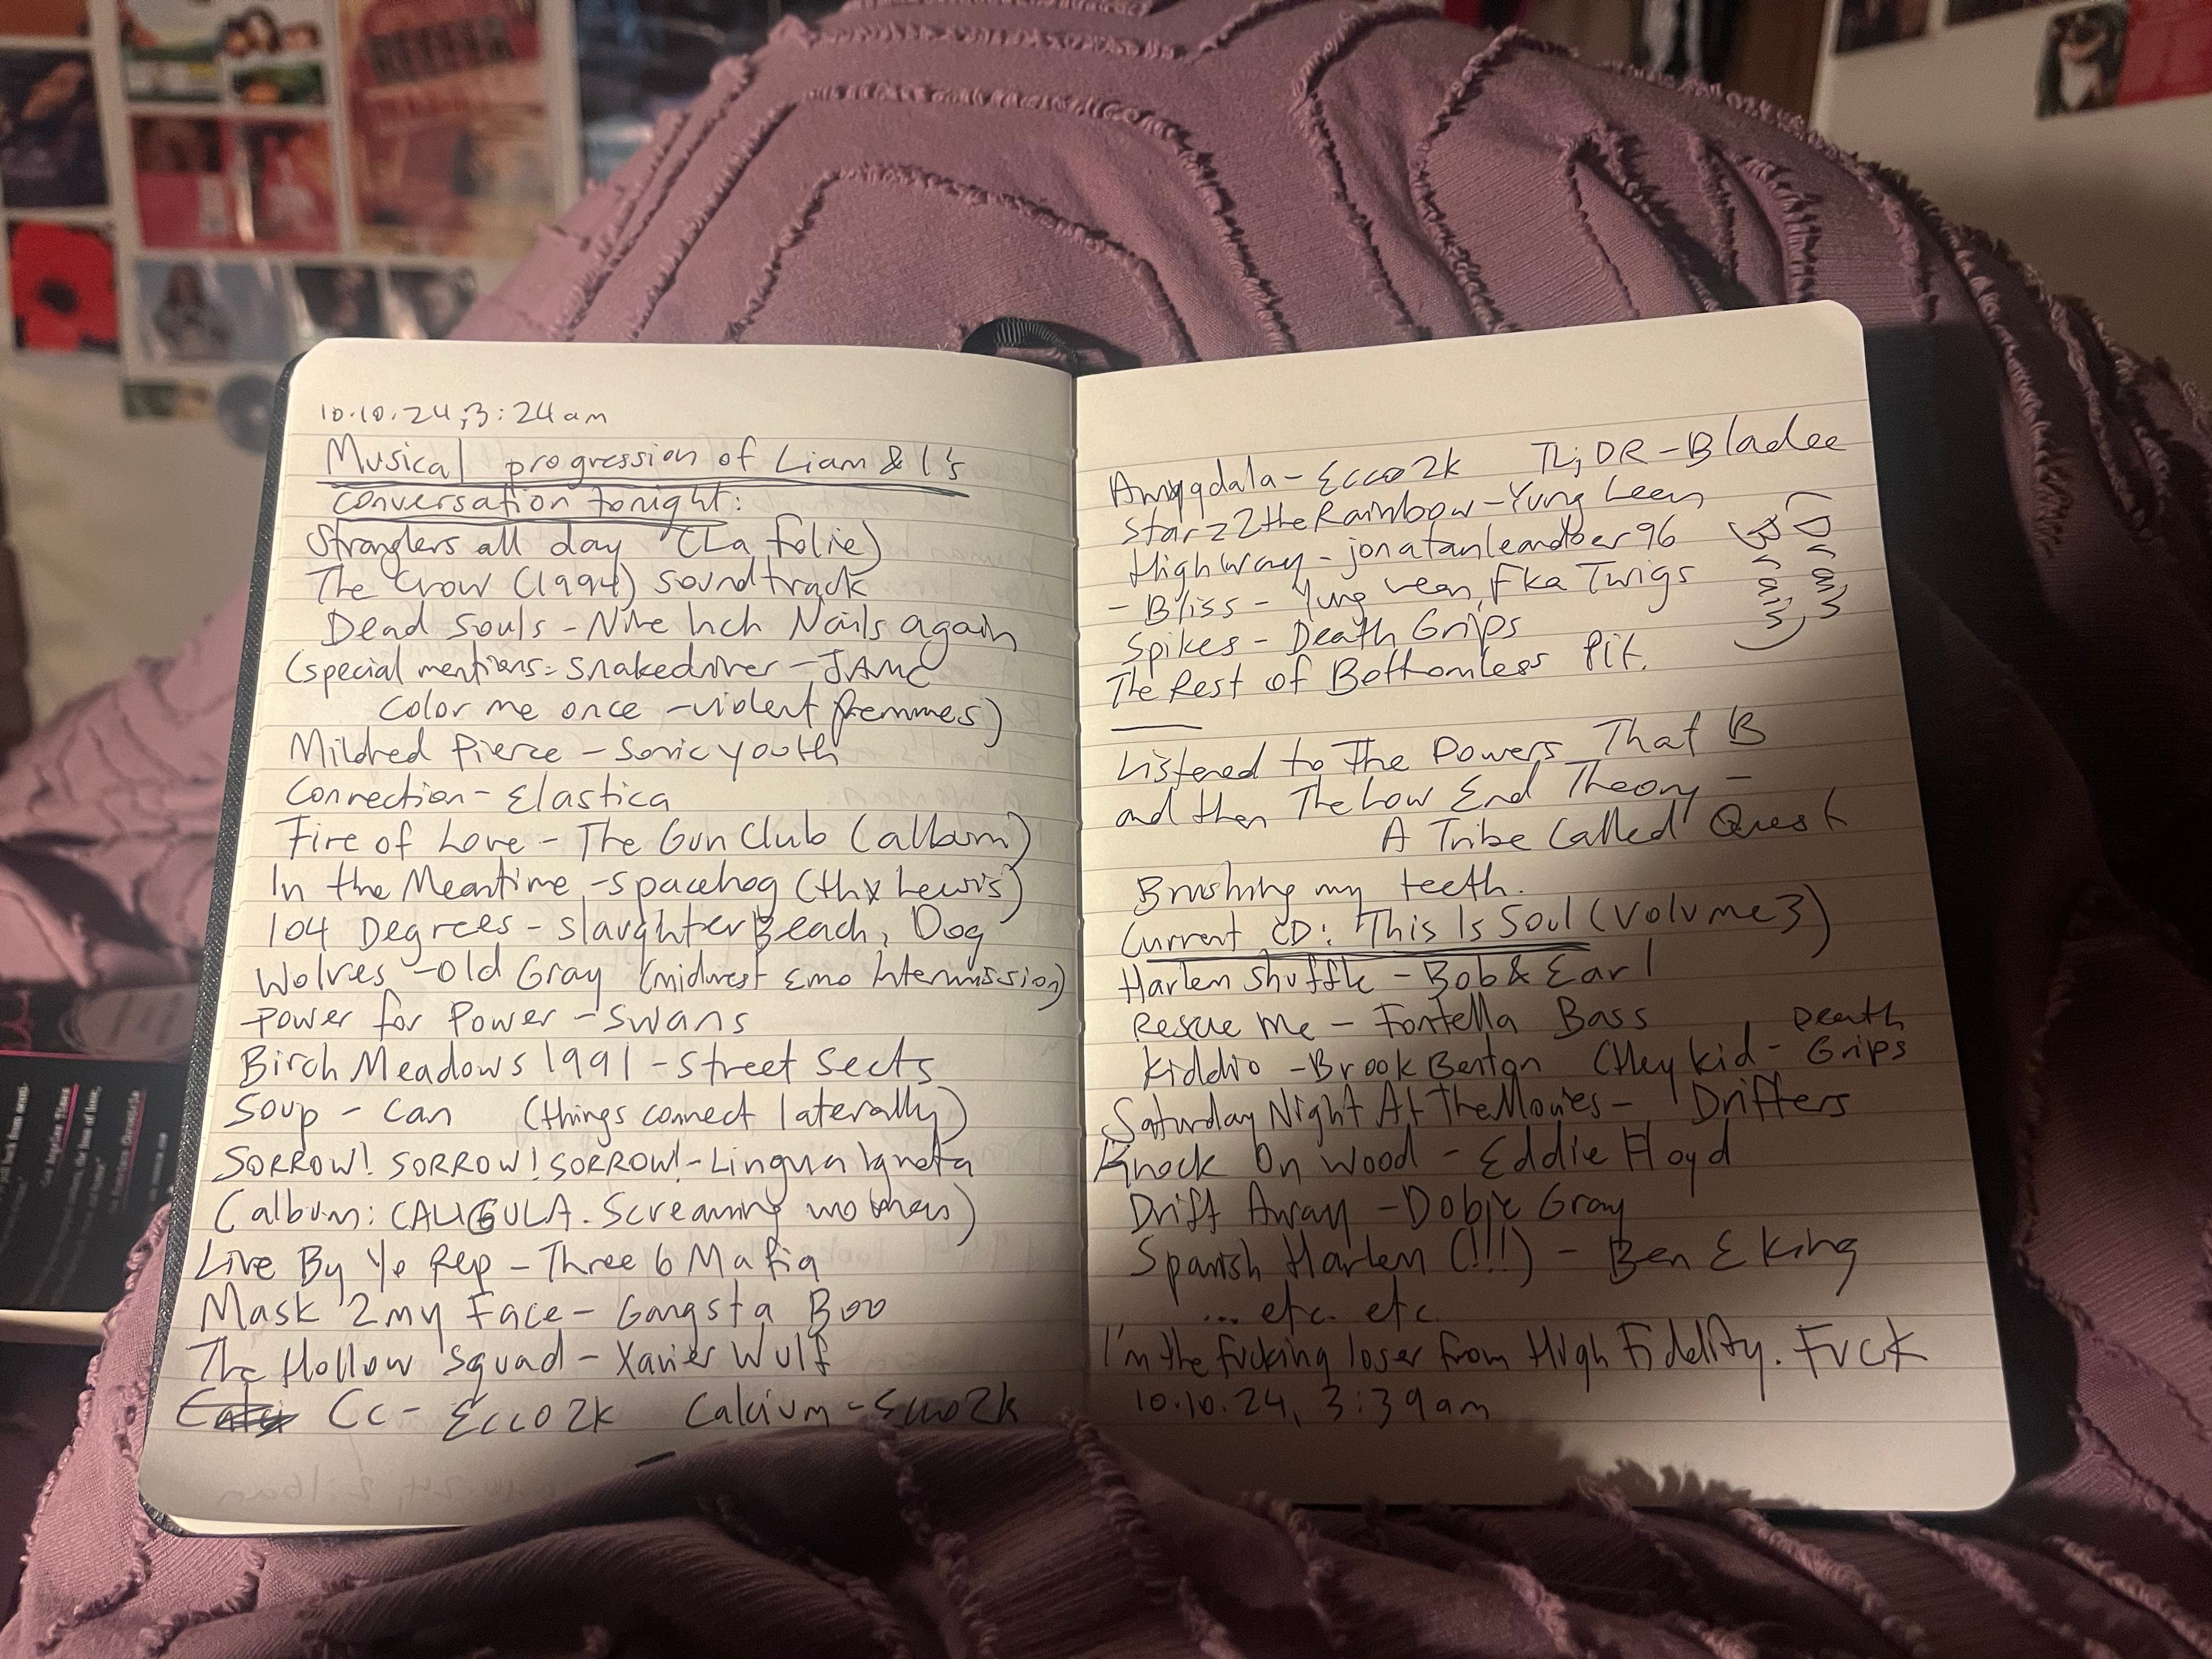 10.10.24, 3:24am
Musical progression of Liam & I's
conversation tonight:
Stranglers all day (La folie)
The Crow (1994) soundtrack
Dead Souls - Nine Inch Nails again
(special mentions: snakedriver - JAMC
color me once - violent femmes)
Mildred Pierce - Sonic youth
Connection - Elastica
Fire of Love - The Gun Club (album)
In the Meantime - spacehog (thx Lewis)
104 Degrees - slaughter Beach, Dog
Wolves - Old Gray (midwest Emo Intermission)
Power for Power - Swans
Birch Meadows 1991 - Street Sects
Soup - Can (things connect laterally)
SORROW! SORROW! SORROW! - Lingua Ignota
(album: CALIGULA. Screaming women)
Live By Yo Rep - Three 6 Mafia
Mask 2 my Face - Gangsta Boo
The Hollow Squad - Xavier Wulf
Cc - Ecco2k Calcium - Ecco2k
Amygdala - Ecco2k TL;DR - Bladee
Starz2theRainbow - Yung Lean
Highway - jonatanleandoer96
- Bliss - Yung Lean, Fka Twigs
Spikes - Death Grips
The Rest of Bottomless Pit.
(Drain Gang)
Listened to The Powers That B
and then The Low End Theory -
A Tribe Called Quest
Brushing my teeth.
Current CD: This Is Soul (Volume 3)
Harlem Shuffle - Bob & Earl
Rescue Me - Fontella Bass
Kiddio - Brook Benton (Hey kid - Death Grips
Saturday Night At The Movies - Drifters
Knock On Wood - Eddie Floyd
Drift Away - Dobie Gray
Spanish Harlem (!!!) - Ben E King
... etc. etc.
I'm the fucking loser from High Fidelity. Fuck
10.10.24, 3:39am